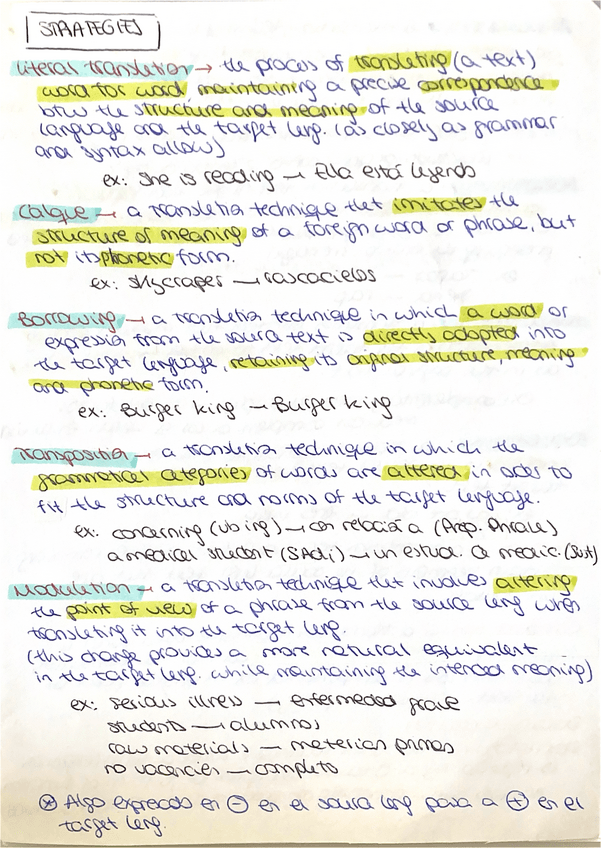 STRATEGIES
Literal translation → the process of translating (a text)
word for word, maintaining a precise correspondence
btw the structure and meaning of the source
language and the target leng. (as closely as grammar
and syntax allow)
ex: she is reading → Ella está leyendo
Calque → a translation technique that imitates the
structure of meaning of a foreign word or phrase, but
not its phonetic form.
ex: skycraper → rascacielos
Borrowing → a translation technique in which a word or
expression from the source text is directly adopted into
the target language, retaining its original structure, meaning
and phonetic form.
ex: Burger king → Burger king
Transposition → a translation technique in which the
grammatical categories of words are altered in order to
fit the structure and norms of the target language.
ex: concerning (vb ing) → con relación a (Prep. Phrase)
a medical student (SAdj) → un estud. de medic. (Sust)
Modulation → a translation technique that involves altering
the point of view of a phrase from the source leng when
translating it into the target leng.
(this change provides a more natural equivalent
in the target leng. while maintaining the intended meaning)
ex: serious illness → enfermedad grave
students → alumnos
raw materials → materias primas
no vacancies → completo
* Algo expresado en - en el source leng pasa a + en el
target leng.